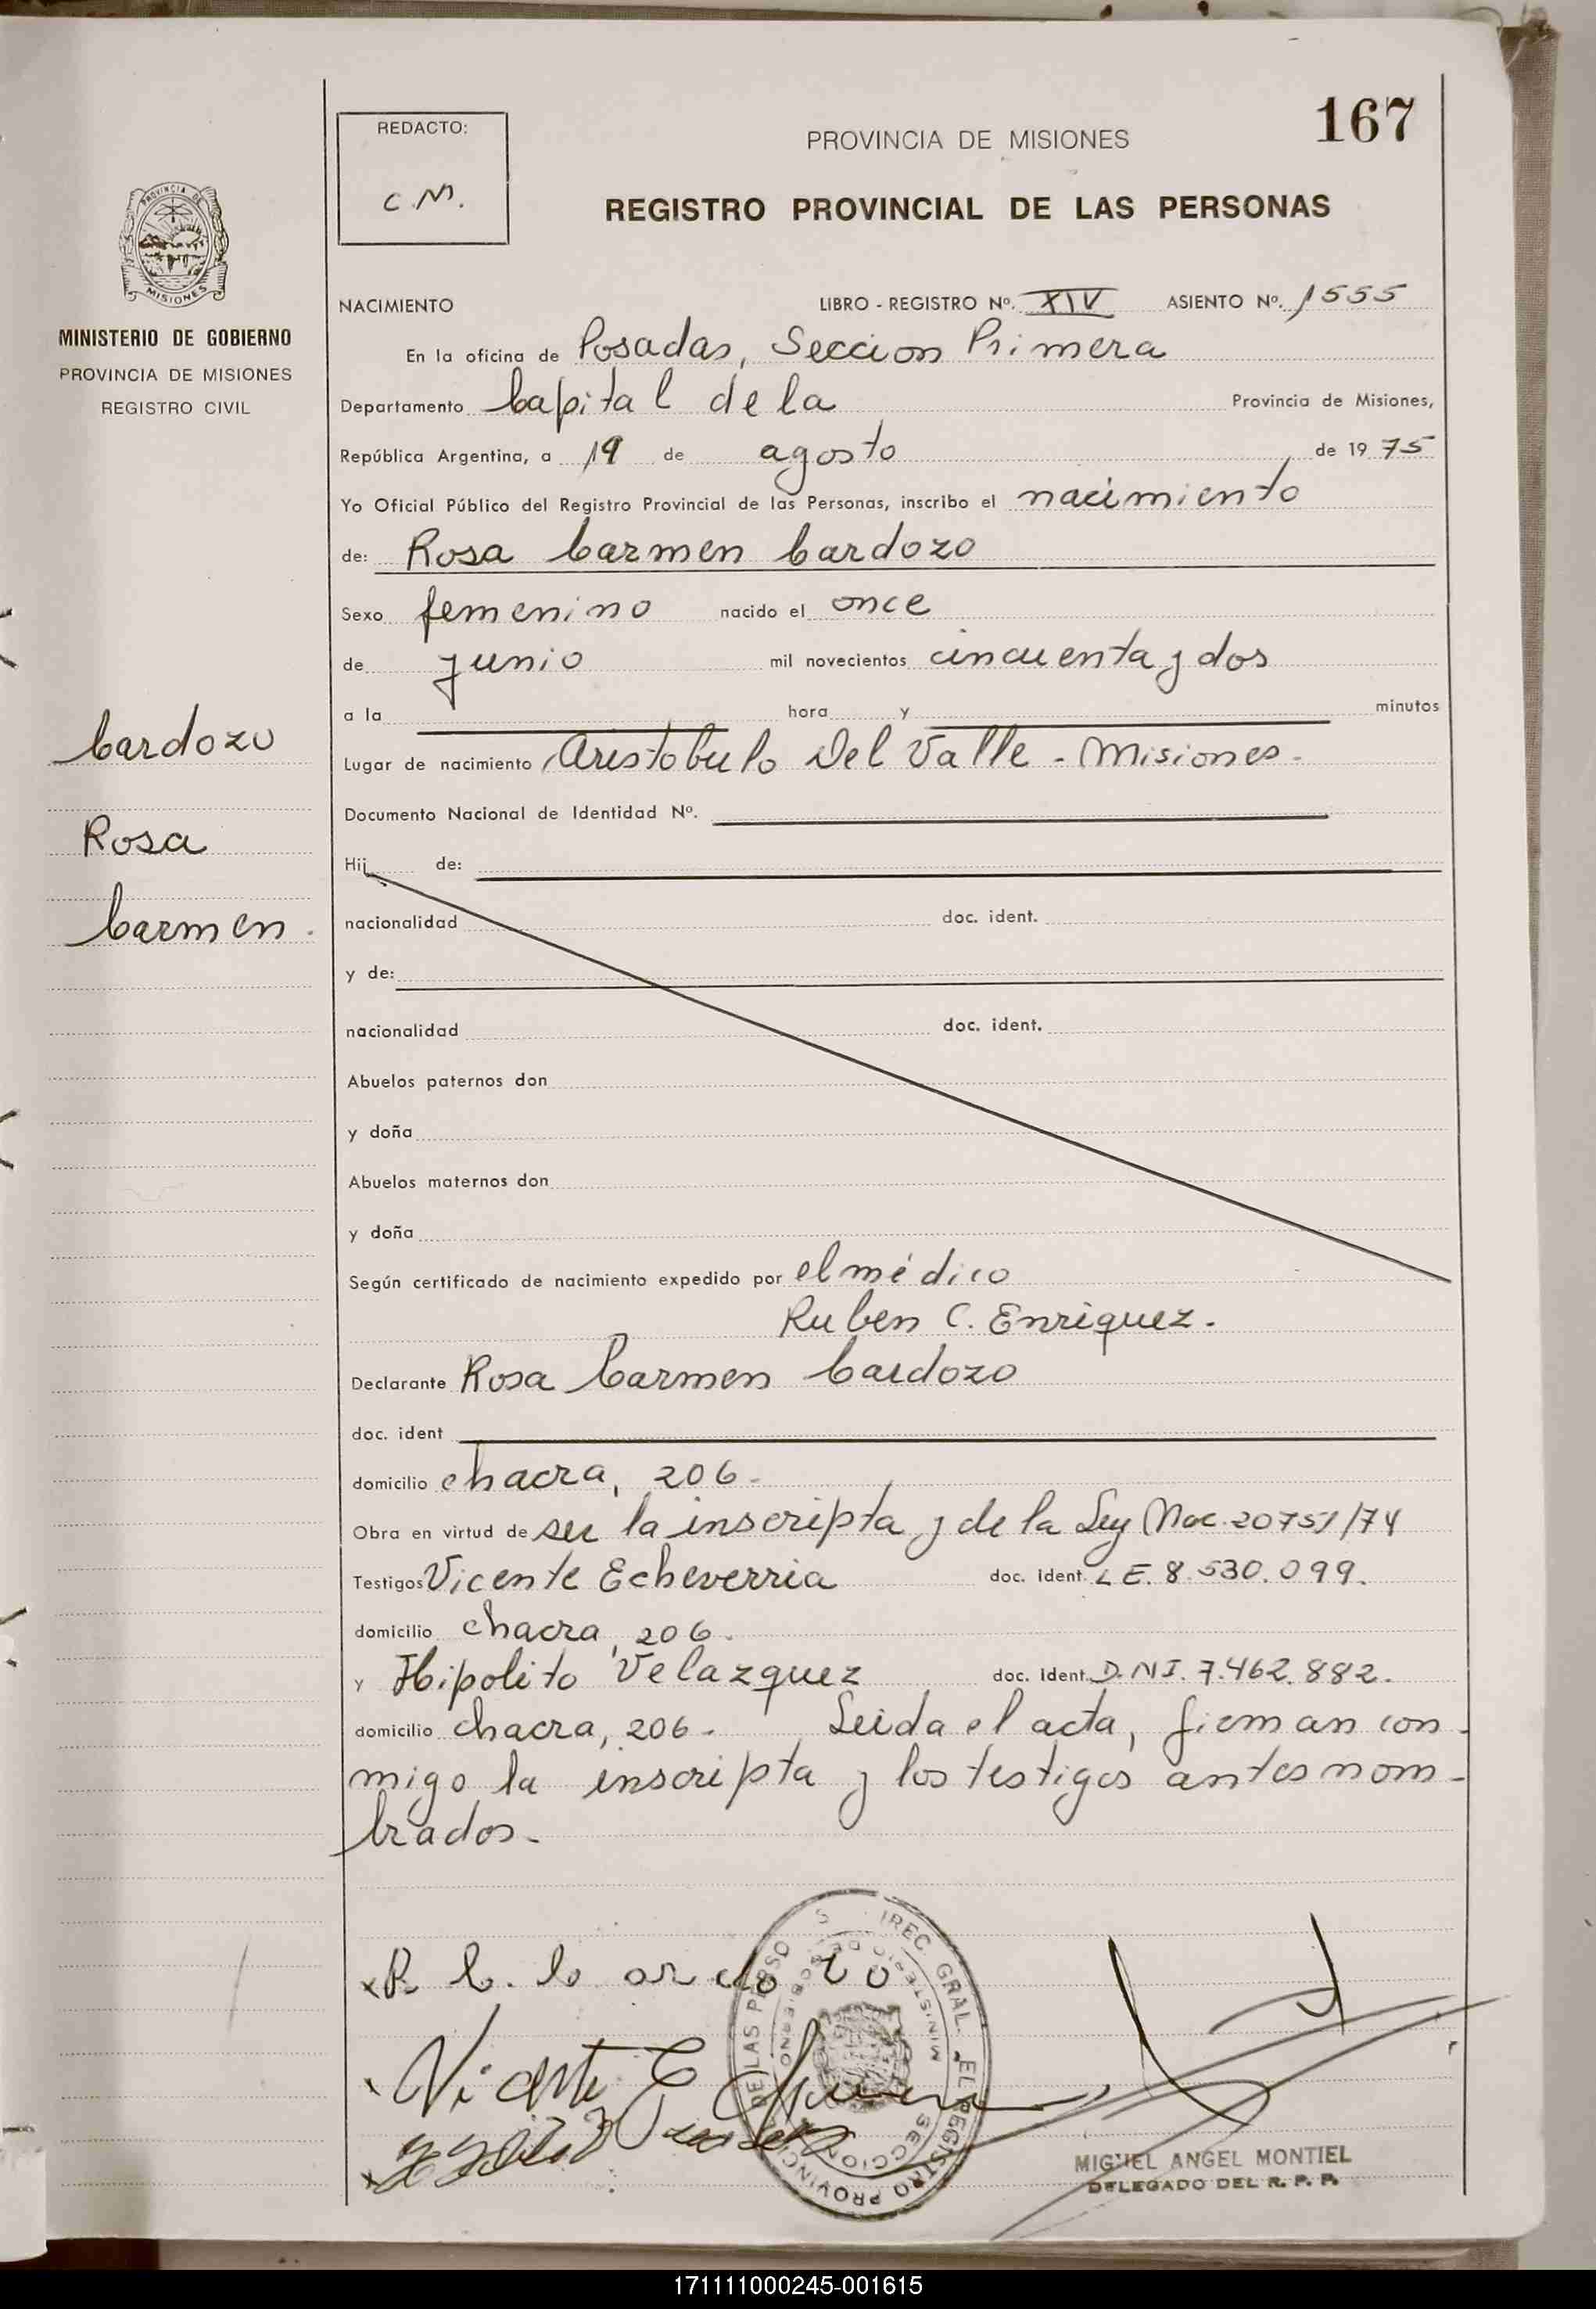 167
REDACTO:
C.M.
PROVINCIA DE MISIONES
REGISTRO PROVINCIAL DE LAS PERSONAS
PROVINCIA DE
MISIONES
MINISTERIO DE GOBIERNO
PROVINCIA DE MISIONES
REGISTRO CIVIL
NACIMIENTO LIBRO - REGISTRO Nº. XIV ASIENTO Nº. 1555
En la oficina de Posadas, Seccion Primera
Departamento Capital de la Provincia de Misiones,
República Argentina, a 19 de agosto de 1975
Yo Oficial Público del Registro Provincial de las Personas, inscribo el nacimiento
de: Rosa Carmen Cardozo
Sexo femenino nacido el once
de junio mil novecientos cincuenta y dos
a la hora y minutos
Cardozo
Rosa
Carmen.
Lugar de nacimiento Aristobulo Del Valle - Misiones-
Documento Nacional de Identidad Nº.
Hij de:
nacionalidad doc. ident.
y de:
nacionalidad doc. ident.
Abuelos paternos don
y doña
Abuelos maternos don
y doña
Según certificado de nacimiento expedido por el médico
Ruben C. Enriquez.
Declarante Rosa Carmen Cardozo
doc. ident
domicilio chacra, 206-
Obra en virtud de ser la inscripta y de la Ley Nac. 20751/74
Testigos Vicente Echeverria doc. ident. L E. 8.530.099.
domicilio chacra, 206-
y Hipolito Velazquez doc. ident. D.N.I. 7.462.882.
domicilio chacra, 206- Leida el acta, firman con-
migo la inscripta y los testigos antes nom-
brados-
R. C. Cardozo
Vicente
DIREC. GRAL. DEL REGISTRO PROVINCIAL DE LAS PERSONAS
MINISTERIO DE GOBIERNO
SECCION
MIGUEL ANGEL MONTIEL
DELEGADO DEL R. P. P.
171111000245-001615